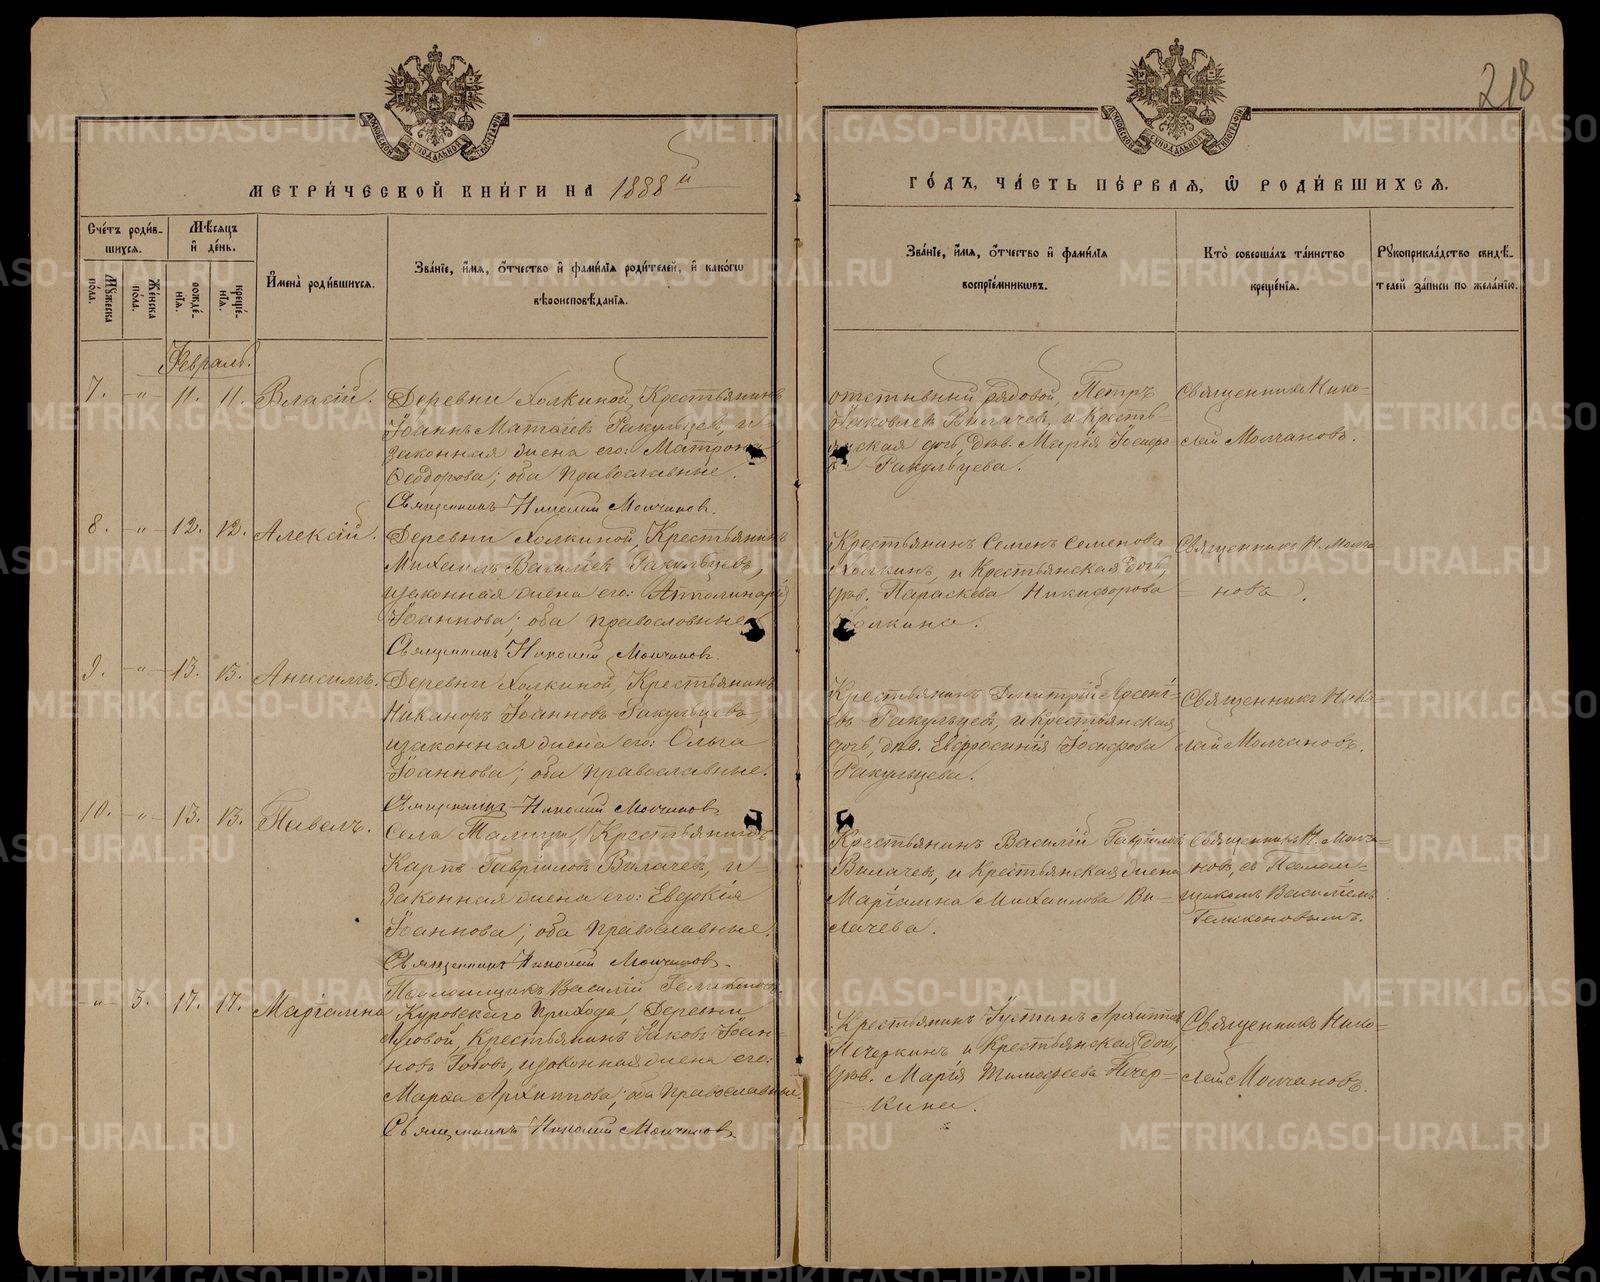 218
МОСКОВСКОЙ СѴНОДАЛЬНОЙ ТИПОГРАФІИ
МОСКОВСКОЙ СѴНОДАЛЬНОЙ ТИПОГРАФІИ
МЕТРИ́ЧЕСКОЙ КНИ́ГИ НА 1888й
ГО́ДЪ, ЧА́СТЬ ПЕ́РВАЯ, Ѿ РОДИ́ВШИХСЯ.
Сче́тъ роди́в-
шихся.
Му́жеска по́ла.
Же́нска по́ла.
Мѣ́сяцъ и де́нь.
рожде́-
нія.
креще́-
нія.
Имена̀ роди́вшихся.
Зва́ніе, и́мя, о́тчество и фами́лія роди́телей, и како́гѡ
вѣроисповѣ́данія.
Зва́ніе, и́мя, о́тчество и фами́лія
воспріе́мникѡвъ.
Кто̀ соверша́лъ та́инство
креще́нія.
Рꙋкоприкла́дство свидѣ́-
телей за́писи по жела́нію.
Февраль.
7. " 11. 11. Власій.
Деревни Холкиной, Крестьянинъ
Іоаннъ Матѳіевъ Ракульцев, и
законная жена его: Матрона
Ѳеодорова; оба православные.
Священникъ Николай Молчанов.
отставный рядовой, Петръ
Яковлев Вилачев, и Кресть-
янская дочь, дѣв. Марія Іосифо-
ва Ракульцева.
Священникъ Нико-
лай Молчановъ.
8. " 12. 12. Алексій.
Деревни Холкиной, Крестьянинъ
Михаилъ Василіев Ракульцевъ,
и законная жена его: Апполинарія
Іоаннова; оба православные.
Священникъ Николай Молчанов.
Крестьянинъ Семенъ Семенова
Холкинъ, и Крестьянская дочь,
дѣв. Параскева Никифорова
Холкина.
Священникъ Н. Молча-
новъ.
9. " 13. 13. Анисимъ.
Деревни Холкиной, Крестьянинъ
Никаноръ Іоанновъ Ракульцевъ,
и законная жена его: Ольга
Іоаннова; оба православные.
Священникъ Николай Молчанов.
Крестьянинъ Димитрій Арсені-
евъ Ракульцев, и Крестьянская
дочь, дѣв. Евфросинія Іосифова
Ракульцева.
Священникъ Нико-
лай Молчановъ.
10. " 13. 13. Павелъ.
Села Талицы, Крестьянинъ
Карпъ Гавріиловъ Вилачев, и
законная жена его: Евдокія
Іоаннова; оба православные.
Священникъ Николай Молчанов.
Псаломщикъ Василій Геликонов.
Крестьянинъ Василій Гавріиловъ
Вилачев, и Крестьянская жена
Маріамна Михаилова Ви-
лачева.
Священникъ Н. Молча-
новъ, съ Псалом-
щикомъ Василіемъ
Геликоновымъ.
" 3. 17. 17. Маріамна
Куровскаго Прихода, Деревни
Крестьянинъ Іаковъ Іоан-
новъ и законная жена его:
Марѳа Архиппова; оба Православные.
Священникъ Николай Молчанов.
Крестьянинъ Іустинъ Архиппов
Печеркинъ и Крестьянская дочь,
дѣв. Марія Тимофеева Печер-
кина.
Священникъ Нико-
лай Молчановъ.
METRIKI.GASO-URAL.RU